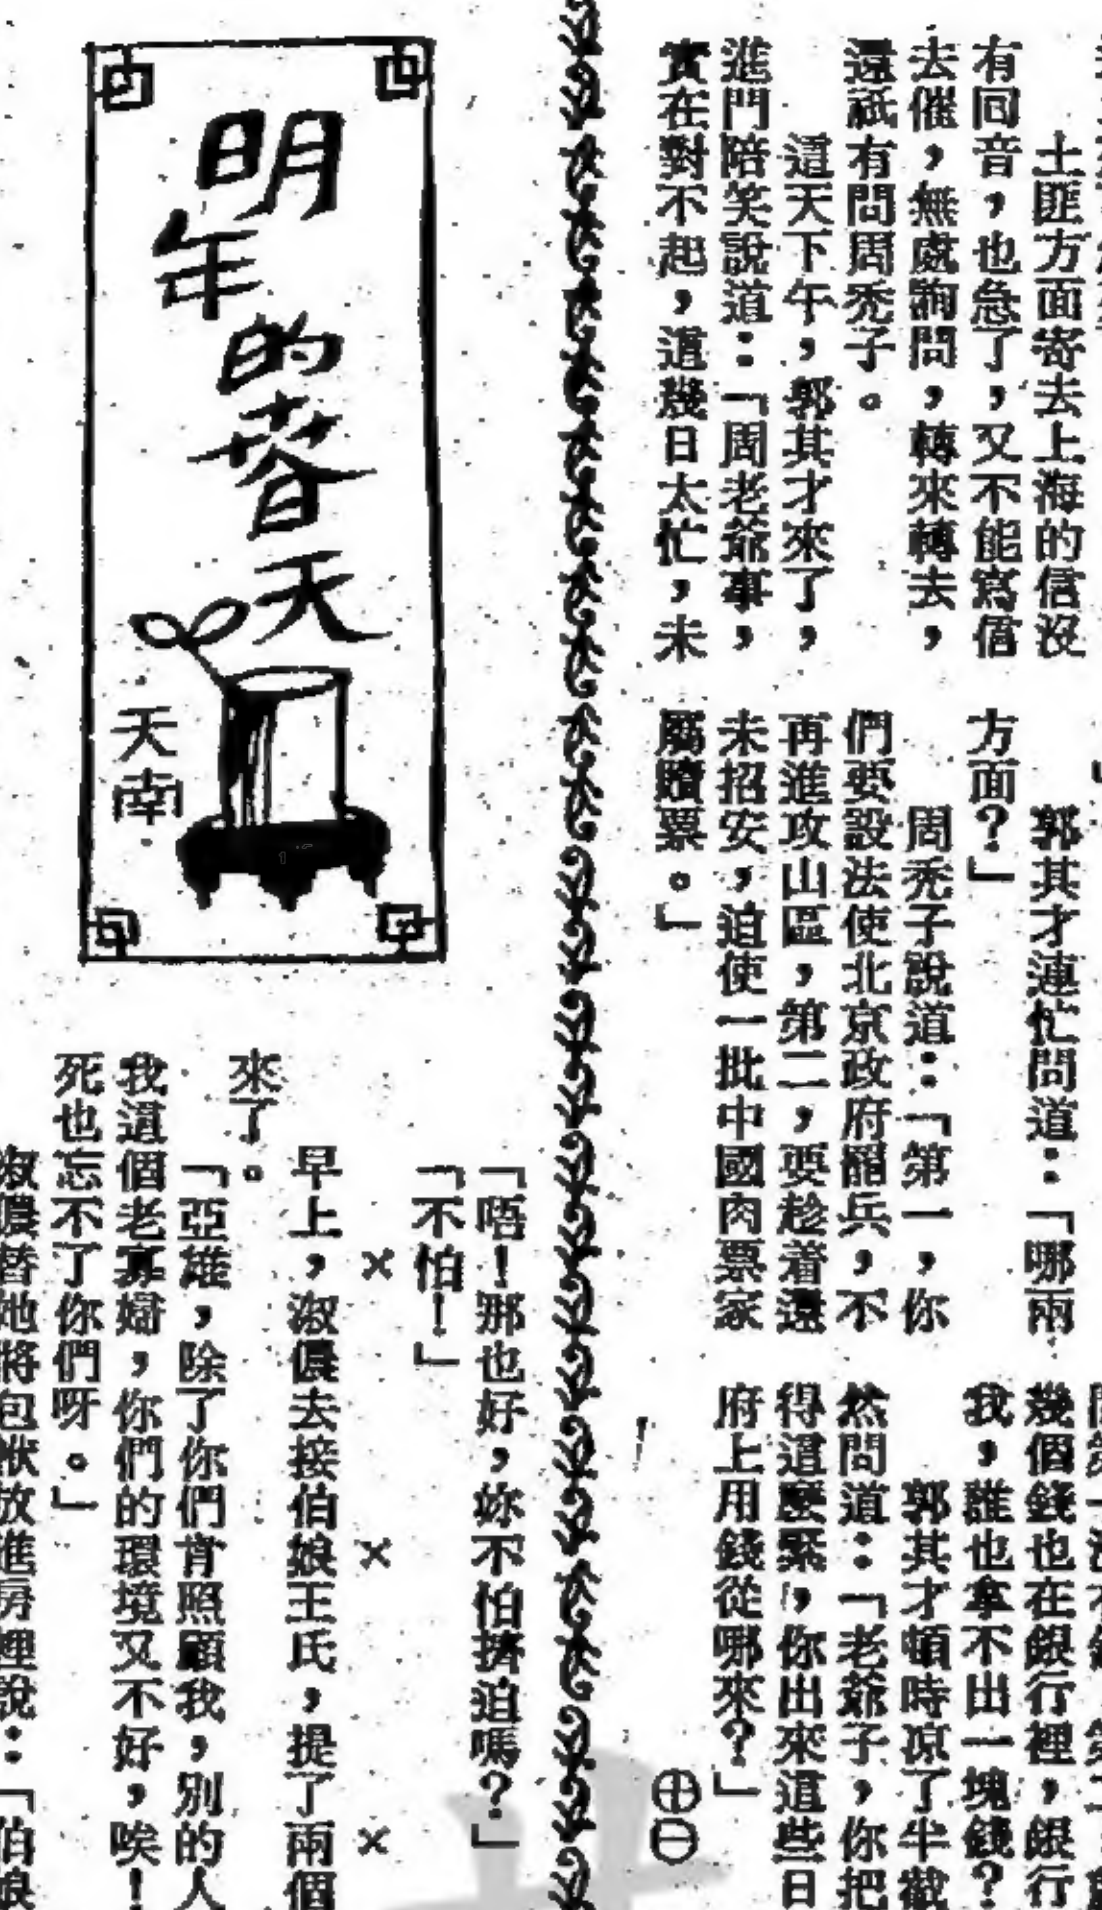 土匪方面寄去上海的信沒
有回音，也急了，又不能寫信
去催，無處詢問，轉來轉去，
還祇有問周禿子。
這天下午，郭其才來了，
進門陪笑說道：「周老爺事，
實在對不起，這幾日太忙，未
郭其才連忙問道：「哪兩
方面？」
周禿子說道：「第一，你
們要設法使北京政府罷兵，不
再進攻山區，第二，要趁着還
未招安，迫使一批中國肉票家
屬贖票。」
幾個錢也在銀行裡，銀行
我，誰也拿不出一塊錢？
郭其才頓時凉了半截
然問道：「老爺子，你把
得這麼緊，你出來這些日
府上用錢從哪來？」
㊉㊀
明年的春天
天南
「唔！那也好，妳不怕擠迫嗎？」
「不怕！」
× × ×
早上，淑儂去接伯娘王氏，提了兩個
來了。
「亞雄，除了你們肯照顧我，別的人
我這個老寡婦，你們的環境又不好，唉！
死也忘不了你們呀。」
淑儂替她將包袱放進房裡說：「伯娘